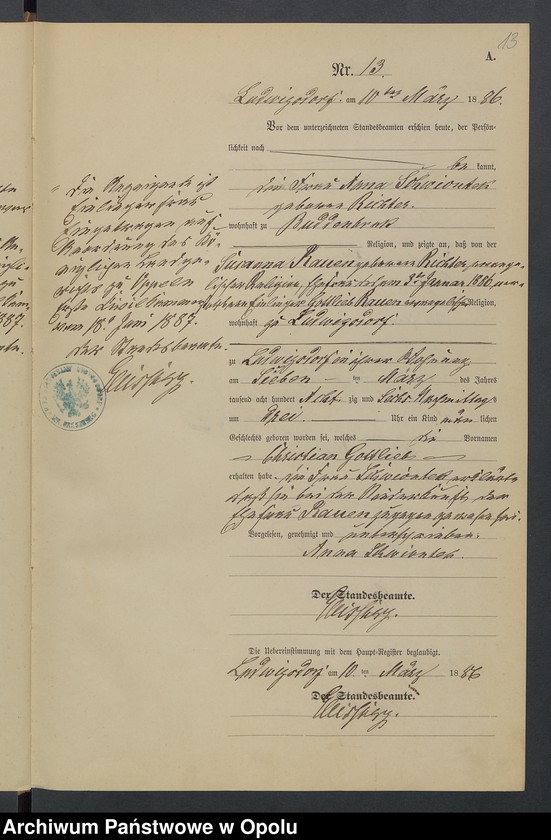 13
A.
Nr. 13.
Ludwigsdorf am 10ten März 1886.
Vor dem unterzeichneten Standesbeamten erschien heute, der Persön-
lichkeit nach
be kannt,
die Frau Anna Schwiontek
geborene Richter.
wohnhaft zu Buddenbrock
Religion, und zeigte an, daß von der
Susanna Krauen geborenen Richter, evange-
lischer Religion, Ehefrau des am Januar 1886 ver-
Gottlieb Krauen evangelischer Religion,
wohnhaft zu Ludwigsdorf.
zu Ludwigsdorf in ihrer Wohnung
am Sieben ten März des Jahres
tausend acht hundert Acht zig und Sechs Nachmittags
um Drei Uhr ein Kind männ lichen
Geschlechts geboren worden sei, welches die Vornamen
Christian Gottlieb
erhalten habe. Die Frau Schwiontek erklärte
daß sie bei der Niederkunft der
Ehefrau Krauen zugegen gewesen sei.
Vorgelesen, genehmigt und unterschrieben.
Anna Schwiontek
Der Standesbeamte.
Die Uebereinstimmung mit dem Haupt-Register beglaubigt.
Ludwigsdorf am 10. ten März 1886
Der Standesbeamte.
Die ist
Eingetragen nach
Anordnung des Kö-
niglichen Landge-
richts zu Oppeln
Erste Civilkammer
vom 18. Juni 1887.
Der Standesbeamte.
Archiwum Państwowe w Opolu